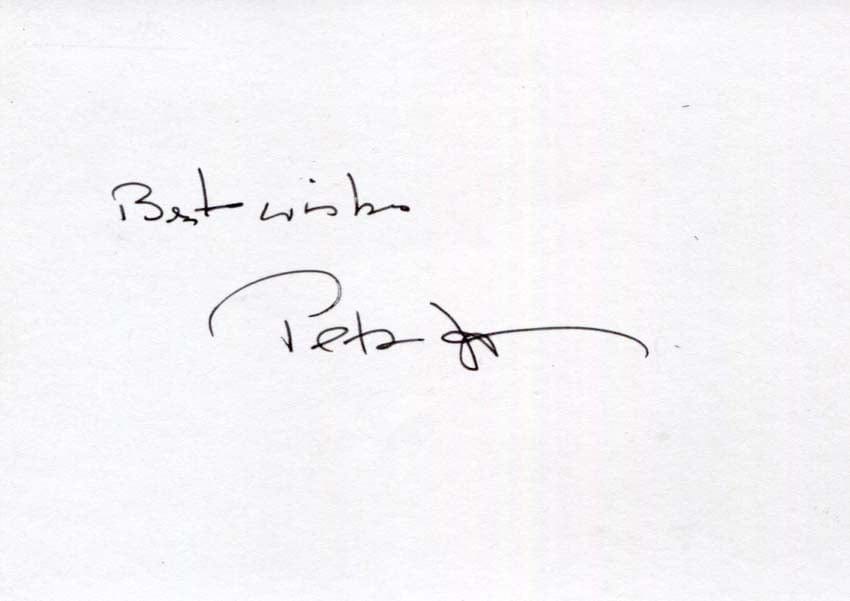 Best wishes
Peter